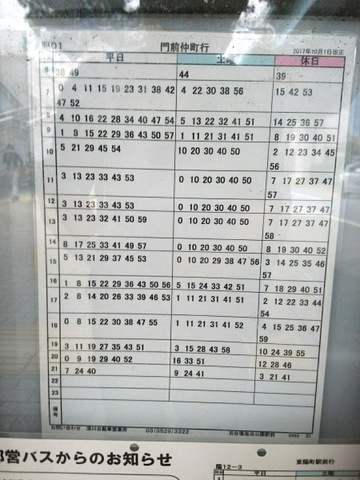 門前仲町行
2017年10月1日改正
平日 土曜 休日
6 38 49 44 39
7 0 4 11 15 19 23 31 38 42 4 22 30 38 56 15 42 53
47 52
8 4 10 16 22 28 34 40 47 54 5 13 22 32 41 51 14 25 36 57
9 1 8 15 22 29 36 43 50 57 1 11 21 31 41 51 8 19 30 40 51
10 5 21 29 45 54 10 20 30 40 50 2 12 23 34 45
56
11 3 13 23 33 43 53 0 10 20 30 40 50 7 17 27 37 47
57
12 3 13 23 33 43 53 0 10 20 30 40 50 7 17 27 37 47
13 3 13 23 32 41 50 59 0 10 20 30 40 50 7 17 27 37 47
58
14 8 17 25 33 41 49 57 0 10 20 30 40 50 8 19 30 40 52
15 5 13 21 29 37 45 53 0 10 20 29 38 47 56 3 14 25 35 46
57
16 1 8 15 22 29 36 43 50 56 5 15 24 33 42 51 7 18 29 40 51
17 2 8 14 20 26 33 39 46 53 1 11 21 31 41 51 2 12 22 33 44
54
18 0 8 15 22 30 38 47 55 1 11 21 31 41 52 4 15 25 36 47
59
19 3 11 19 27 35 43 51 3 15 28 43 58 10 24 39 55
20 0 9 19 29 40 52 16 33 51 12 28 46
21 7 24 40 9 24 41 3 21 41
22
23
備考
お問い合わせ 深川自動車営業所 03(3529)3322
営バスからのお知らせ
陽12-3 東陽町駅前行
平日 土曜